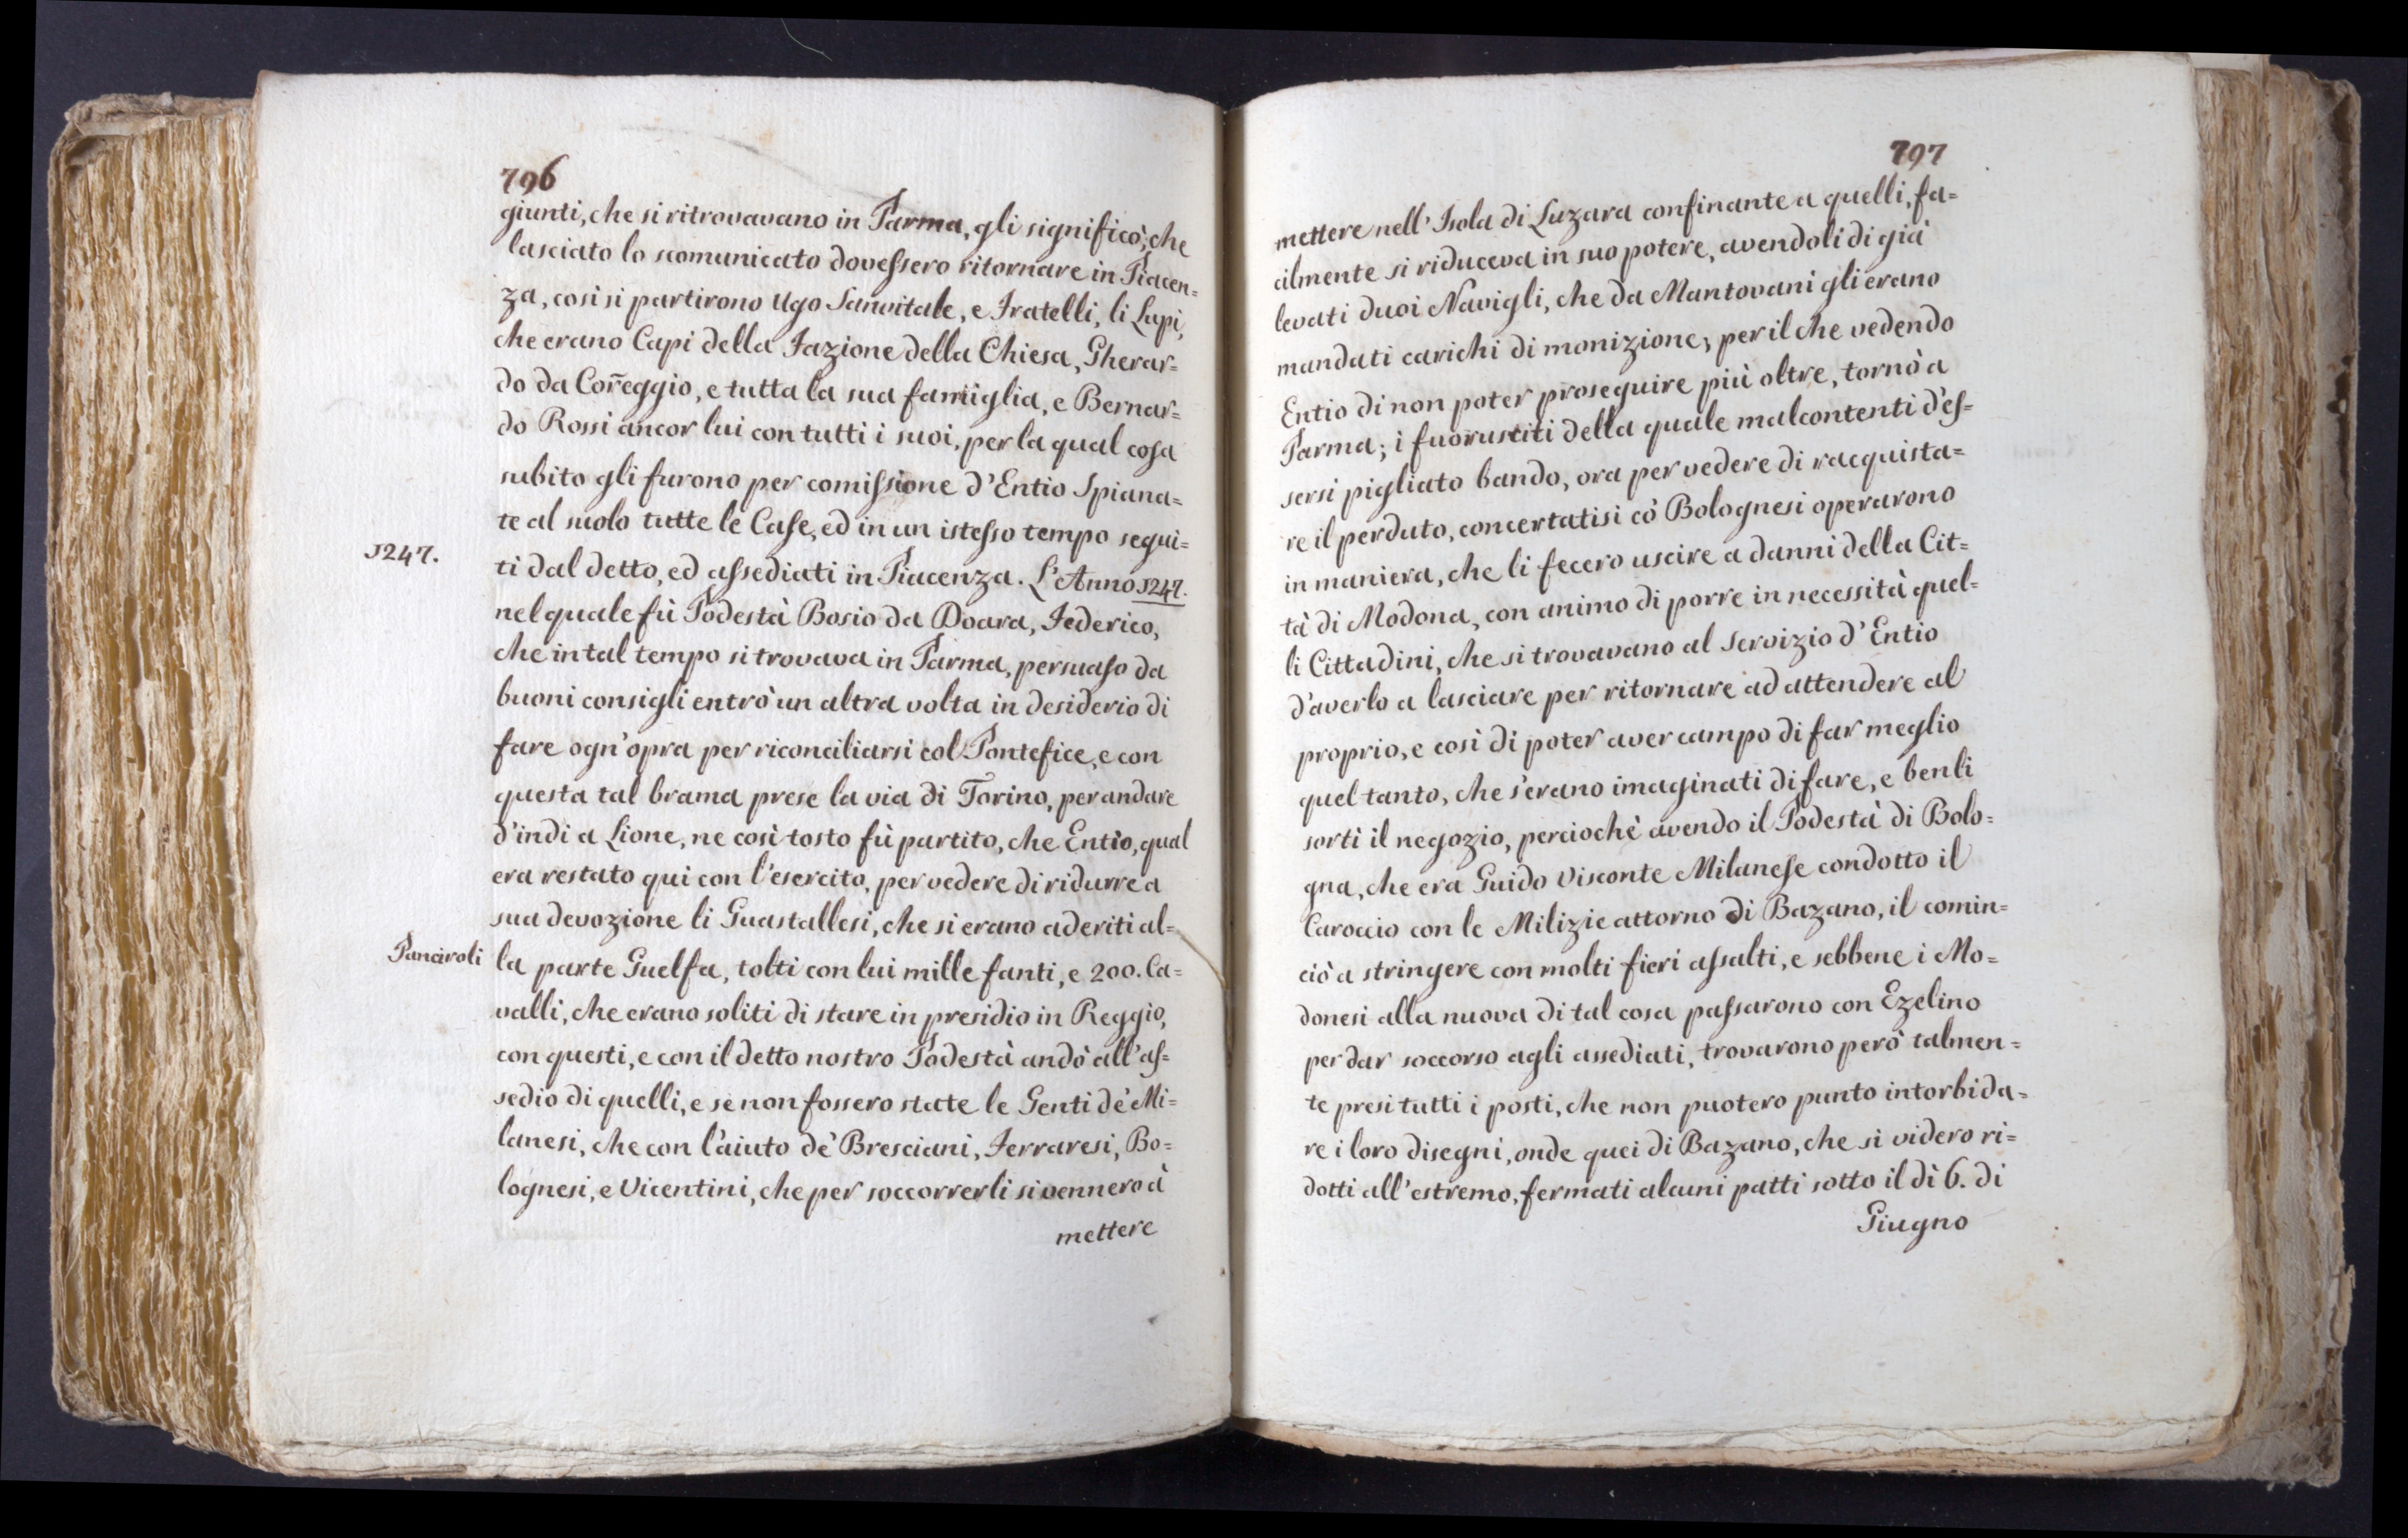 796
giunti, che si ritrovavano in Parma, gli significò, che
lasciato lo scomunicato dovessero ritornare in Piacen=
za, così si partirono Ugo Sanvitale, e Fratelli, li Lupi,
che erano Capi della Fazione della Chiesa, Gherar=
do da Correggio, e tutta la sua famiglia, e Bernar=
do Rossi ancor lui con tutti i suoi, per la qual cosa
subito gli furono per comissione d'Entio Spiana=
te al suolo tutte le Case, ed in un istesso tempo segui=
1247.
ti dal detto, ed assediati in Piacenza. L'Anno 1247.
nel quale fù Podestà Bosio da Doara, Federico,
che in tal tempo si trovava in Parma, persuaso da
buoni consigli entrò un altra volta in desiderio di
fare ogn'opra per riconciliarsi col Pontefice, e con
questa tal brama prese la via di Torino, per andare
d'indi a Lione, ne così tosto fù partito, che Entio, qual
era restato qui con l'esercito, per vedere di ridurre a
sua devozione li Guastallesi, che si erano aderiti al=
Panciroli
la parte Guelfa, tolti con lui mille fanti, e 200. Ca=
valli, che erano soliti di stare in presidio in Reggio,
con questi, e con il detto nostro Podestà andò all'as=
sedio di quelli, e se non fossero state le Genti dè Mi=
lanesi, che con l'aiuto dè Bresciani, Ferraresi, Bo=
lognesi, e Vicentini, che per soccorrerli si vennero à
mettere
797
mettere nell'Isola di Luzara confinante a quelli, fa=
cilmente si riduceva in suo potere, avendoli di già
levati duoi Navigli, che da Mantovani gli erano
mandati carichi di monizione; per il che vedendo
Entio di non poter proseguire più oltre, tornò a
Parma; i fuorusciti della quale malcontenti d'es=
sersi pigliato bando, ora per vedere di racquista=
re il perduto, concertatisi cò Bolognesi operarono
in maniera, che li fecero uscire a danni della Cit=
tà di Modona, con animo di porre in necessità quel=
li Cittadini, che si trovavano al servizio d'Entio
d'averlo a lasciare per ritornare ad attendere al
proprio, e così di poter aver campo di far meglio
quel tanto, che s'erano imaginati di fare, e ben li
sortì il negozio, perciochè avendo il Podestà di Bolo=
gna, che era Guido Visconte Milanese condotto il
Caroccio con le Milizie attorno di Bazano, il comin=
ciò a stringere con molti fieri assalti, e sebbene i Mo=
donesi alla nuova di tal cosa passarono con Ezelino
per dar soccorso agli assediati, trovarono però talmen=
te presi tutti i posti, che non puotero punto intorbida=
re i loro disegni, onde quei di Bazano, che si videro ri=
dotti all'estremo, fermati alcuni patti sotto il dì 6. di
Giugno